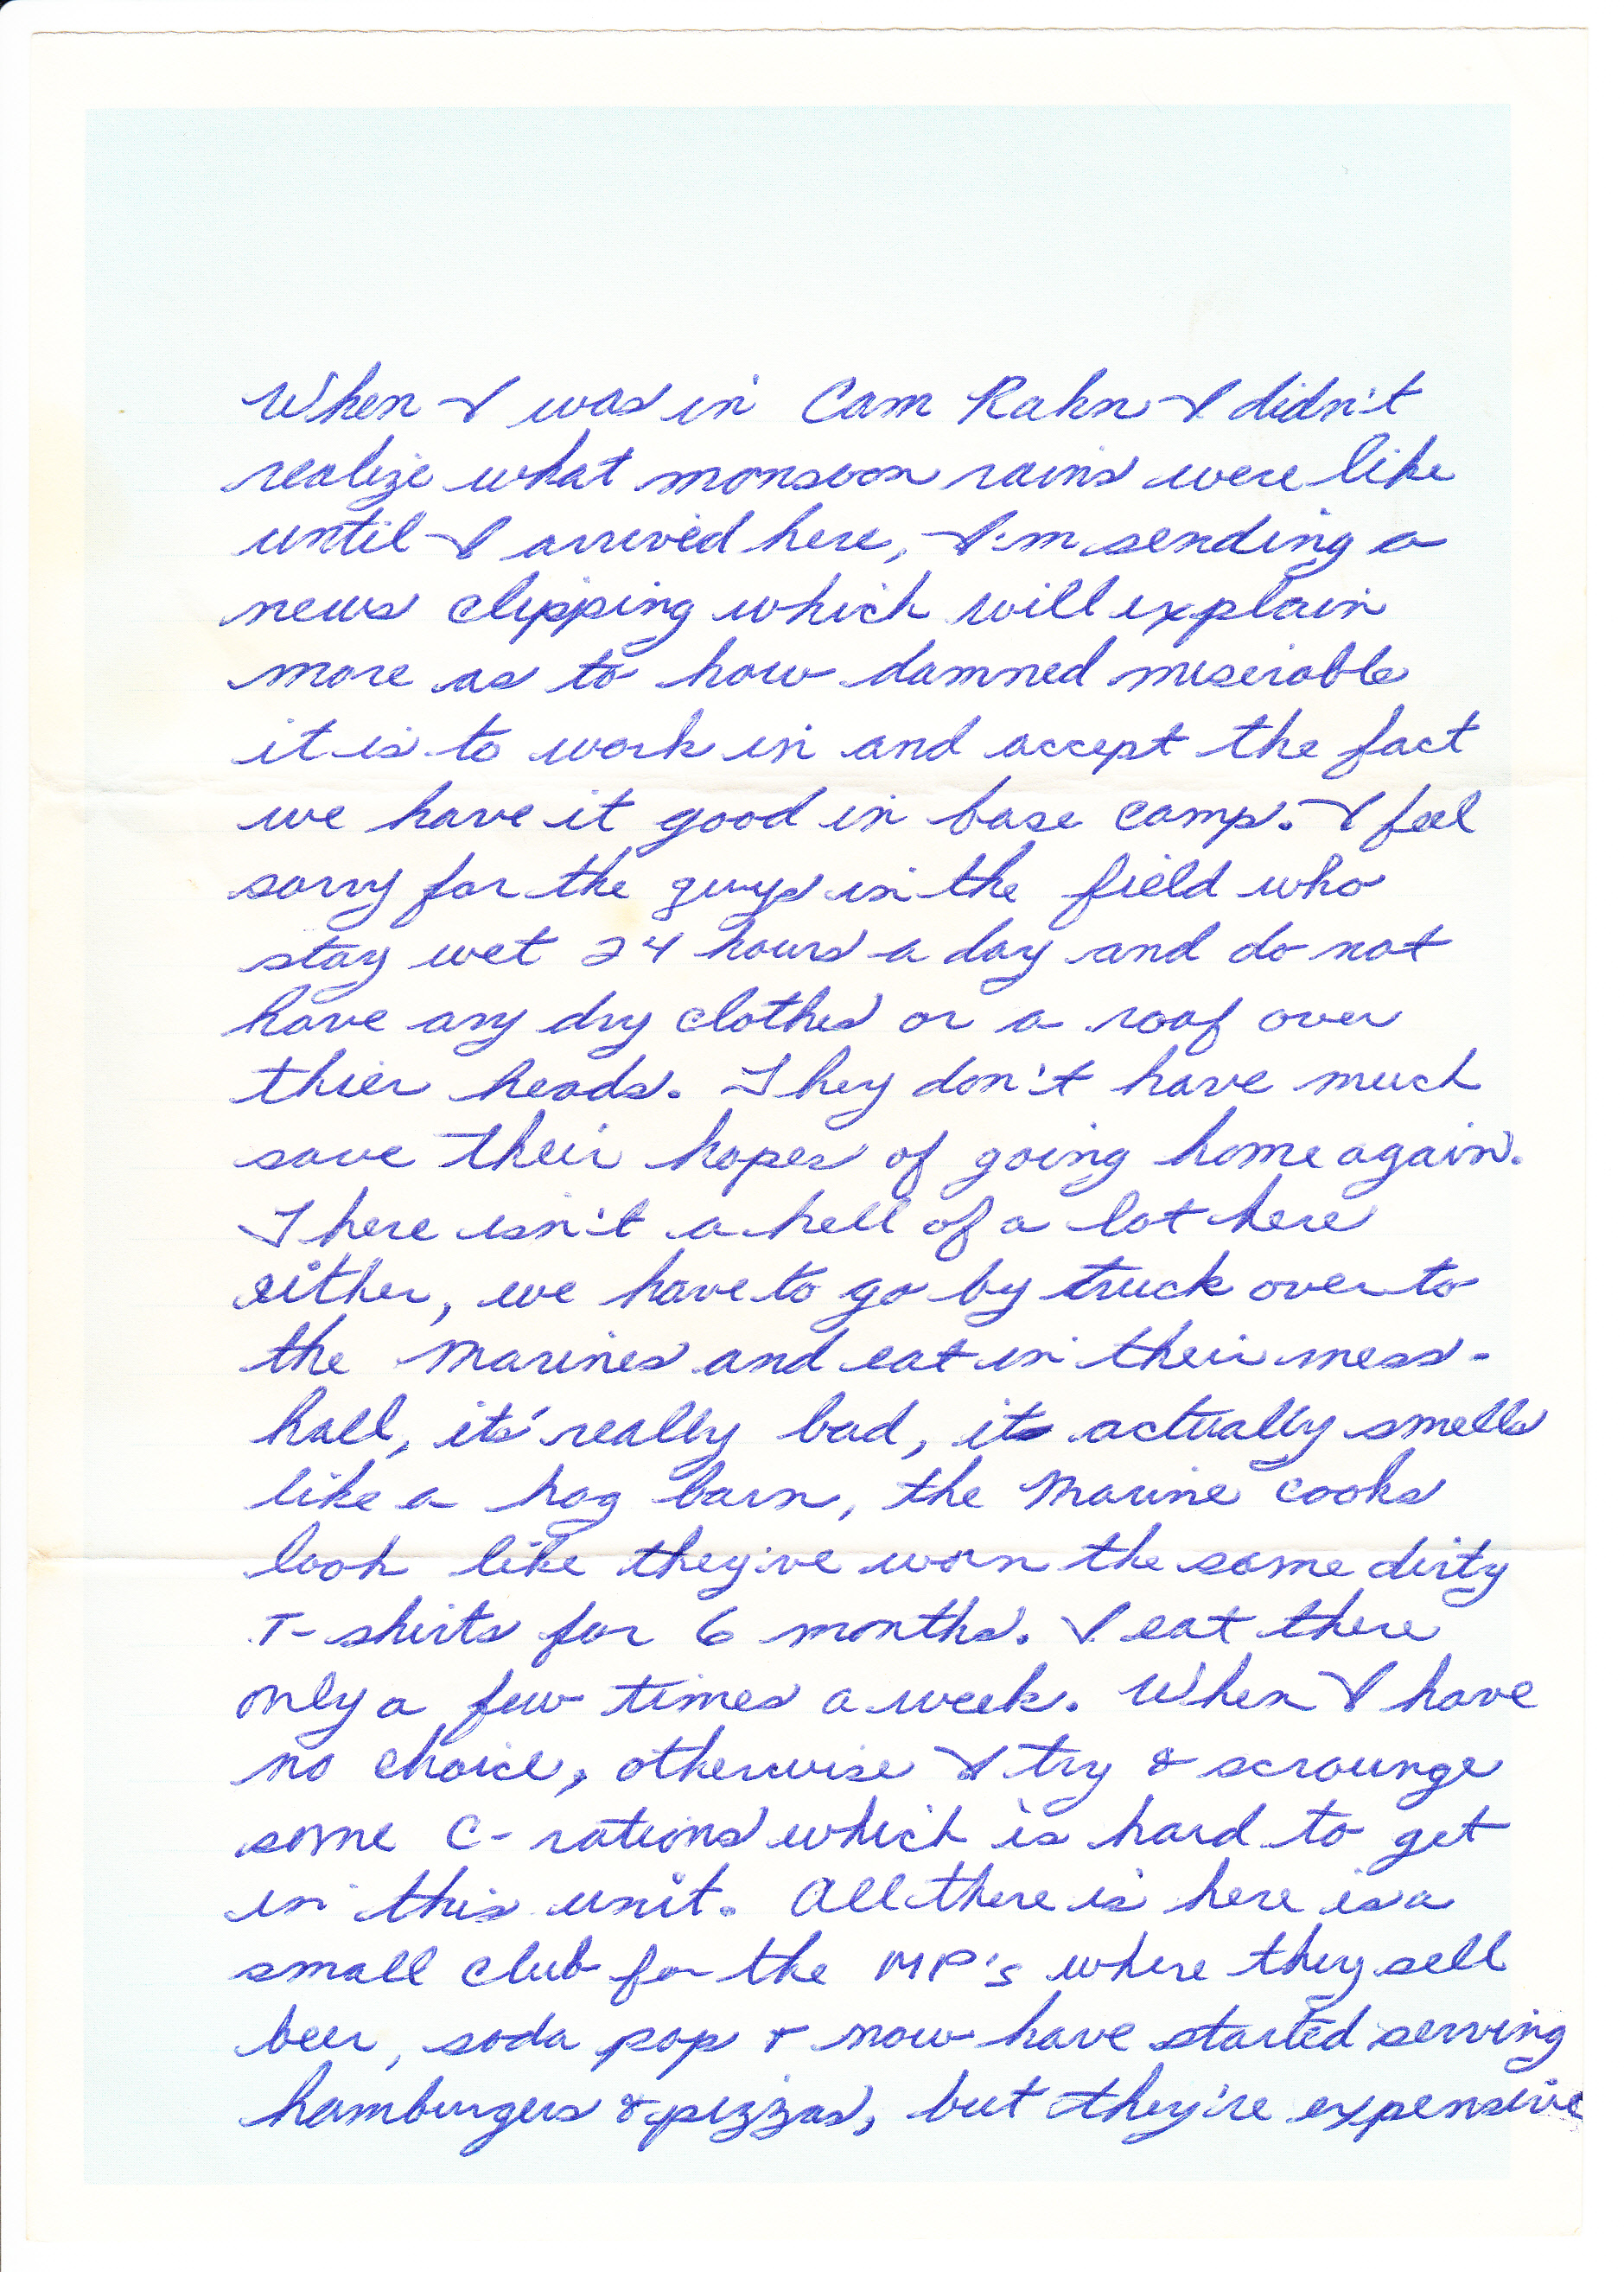 When I was in Cam Rahn I didn't
realize what monsoon rains were like
until I arrived here, I'm sending a
news clipping which will explain
more as to how damned miserable
it is to work in and accept the fact
we have it good in base camp. I feel
sorry for the guys in the field who
stay wet 24 hours a day and do not
have any dry clothes or a roof over
thier heads. They don't have much
save their hopes of going home again.
There isn't a hell of a lot here
either, we have to go by truck over to
the Marines and eat in their mess-
hall, its' really bad, its actually smells
like a hog barn, the Marine cooks
look like they've worn the same dirty
T-shirts for 6 months. I eat there
only a few times a week. When I have
no choice, otherwise I try & scrounge
some C-rations which is hard to get
in this unit. All there is here is a
small club for the MP's where they sell
beer, soda pop & now have started serving
hamburgers & pizzas, but they're expensive